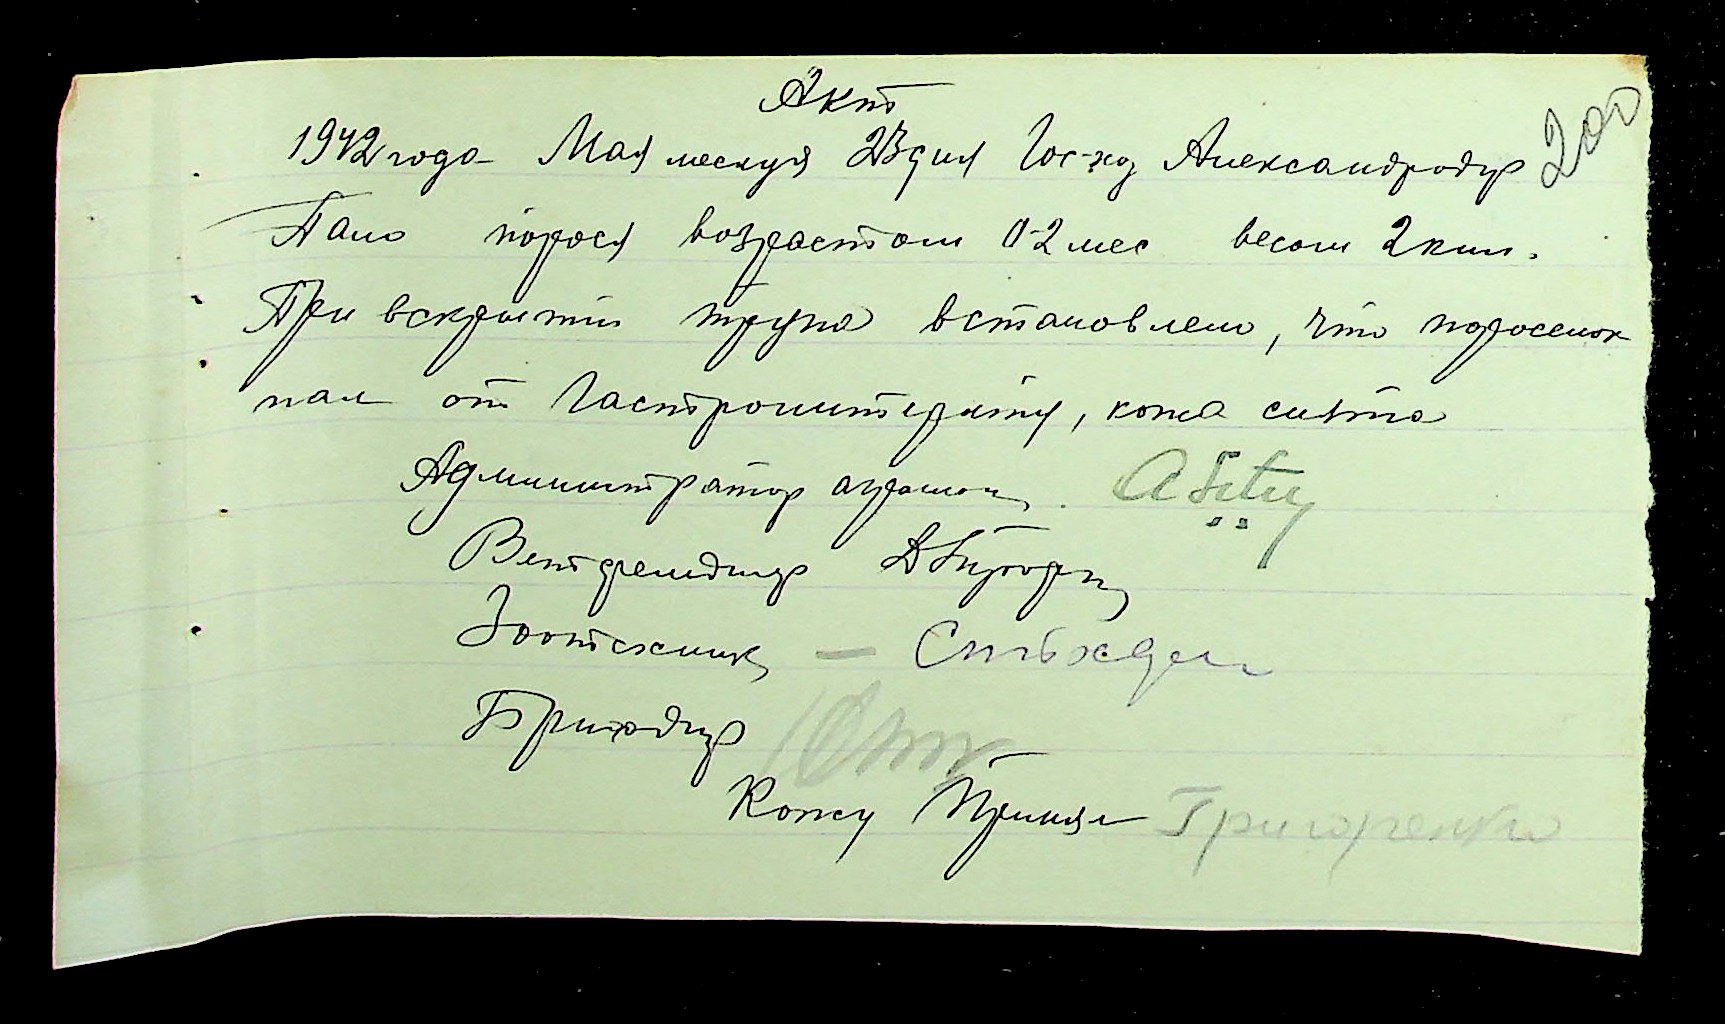 Акт
200
1942 года Мая месяця 23 дня Гос-хоз Александродар
Пало порося возрастом 0-2 мес весом 2 кил.
При вскрытии трупа встановлено, что поросенок
пал от Гастроэнтерита, кожа снята
Администратор
Ветфельдшер
Зоотехник –
Бригадир
Кожу Принял Григоренко